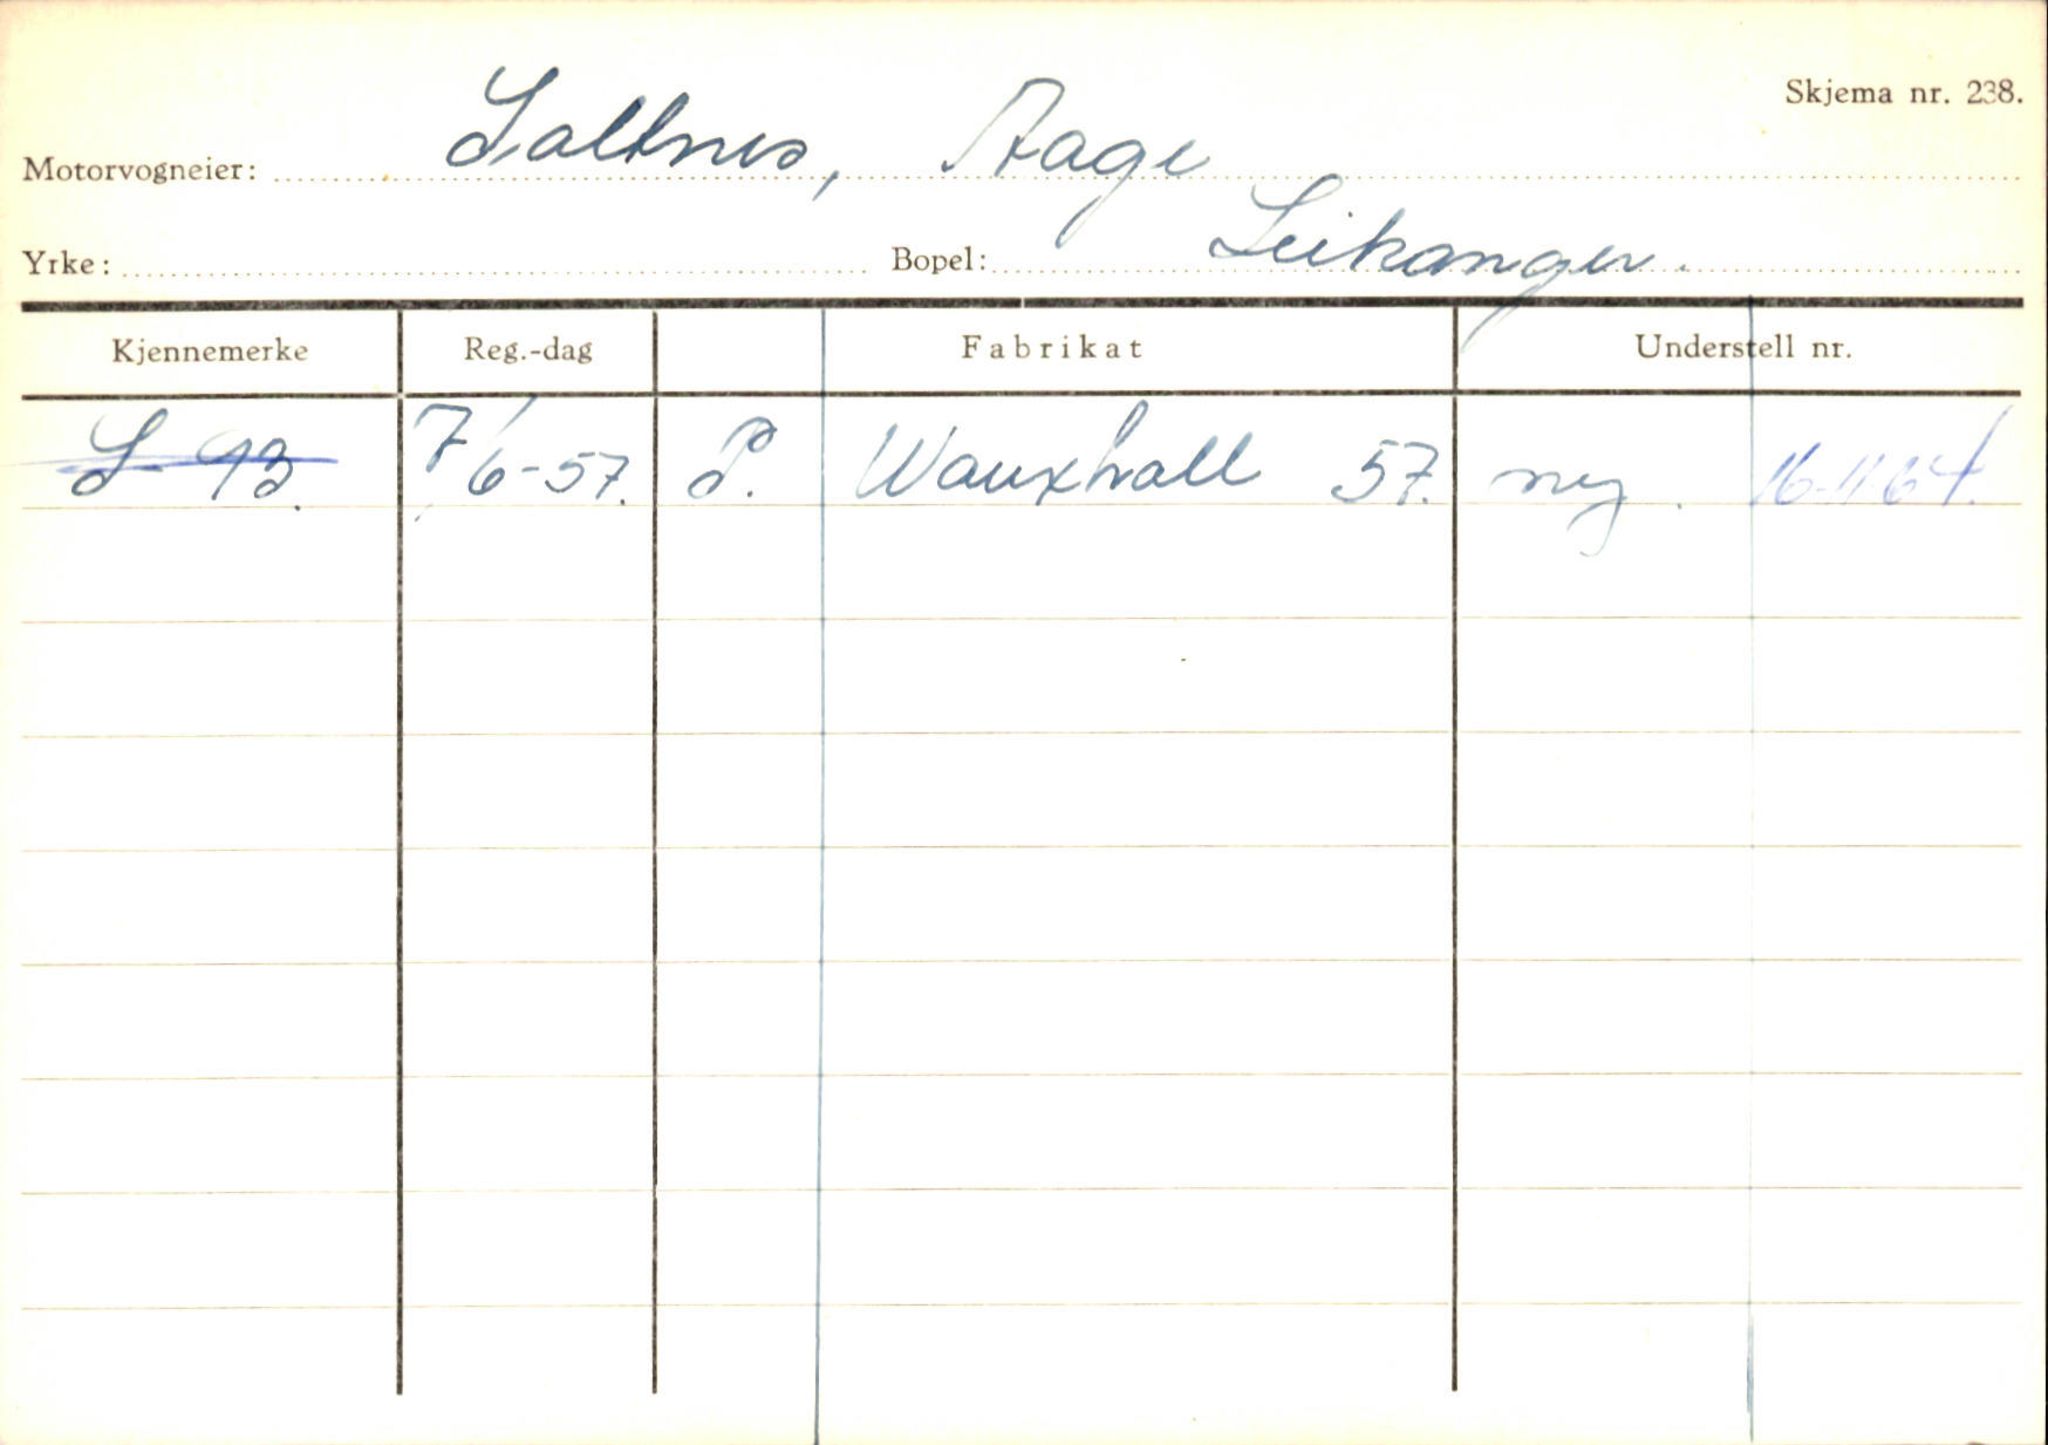 Skjema nr. 238.
Motorvogneier: Saltnes, Aage
Yrke: Bopel: Leikanger.
Kjennemerke Reg.-dag Fabrikat Understell nr.
S-93. 7/6-57. P. Wauxhall 57. ny. 16-11-64.